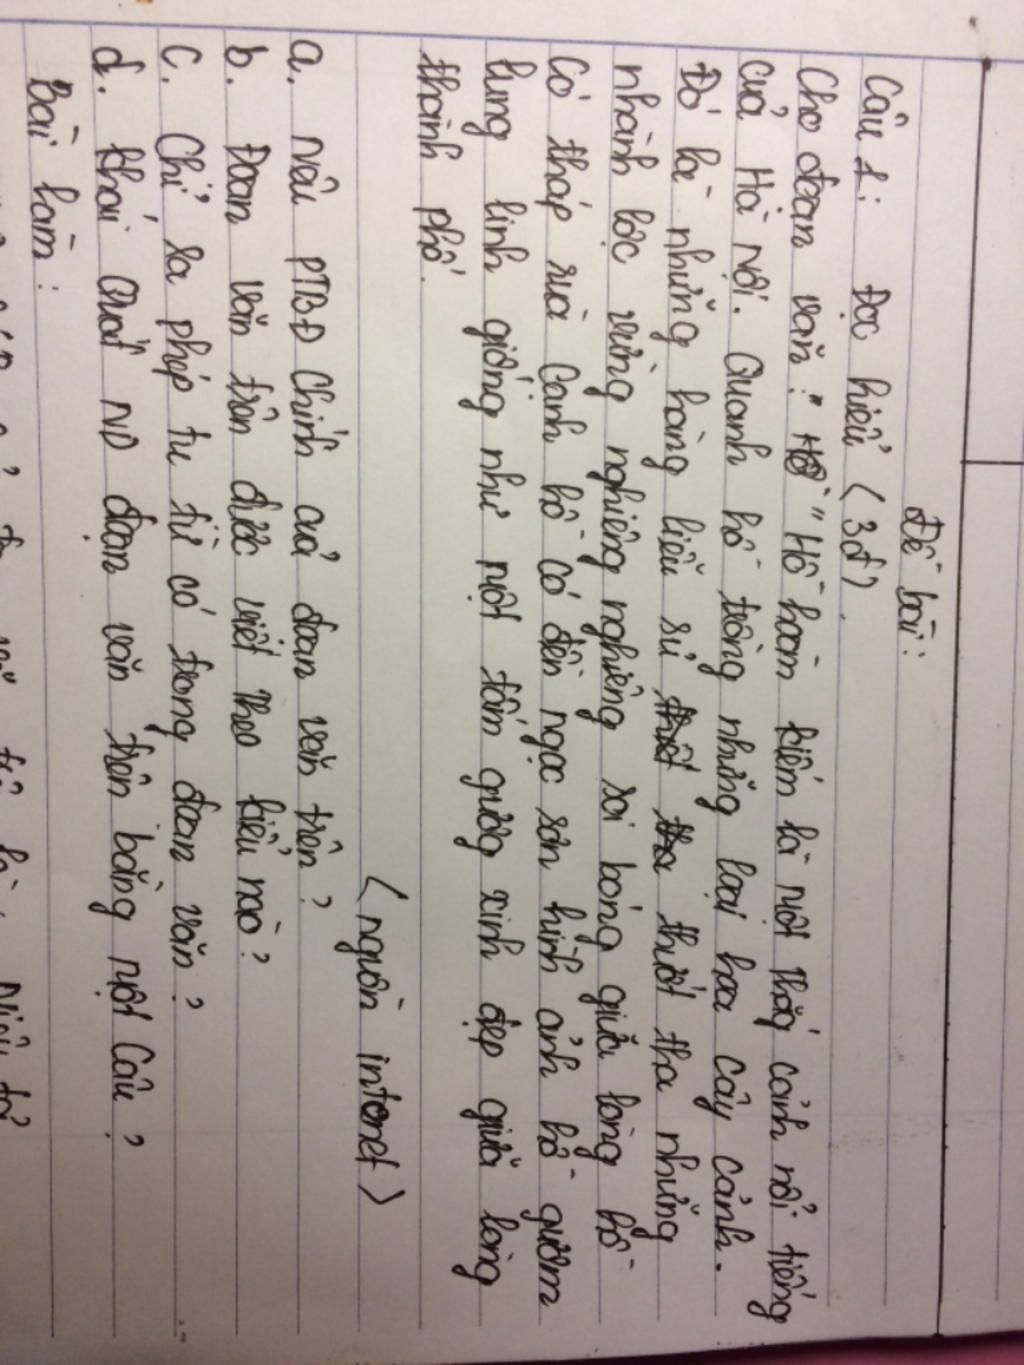 Đề bài:
Câu 1: Đọc hiểu (3đ).
Cho đoạn văn: "Hồ" "Hồ hoàn kiếm là một thắg cảnh nổi tiếng
của Hà Nội. Quanh hồ trồng những loại hoa cây cảnh.
Đó là những hàng liễu rủ thướt tha thướt tha những
nhành lộc vừng nghiêng nghiêng soi bóng giữa lòng hồ
Có tháp rùa Cạnh hồ có đền ngọc sơn hình ảnh hồ gươm
lung linh giống như một tấm gương xinh đẹp giữa lòng
thành phố.
(nguồn internet)
a. Nêu PTBĐ Chính của đoạn văn trên?
b. Đoạn văn trên được viết theo kiểu nào?
c. Chỉ ra phép tu từ có trong đoạn văn?
d. Khái Quát ND đoạn văn trên bằng một Câu?
Bài làm: